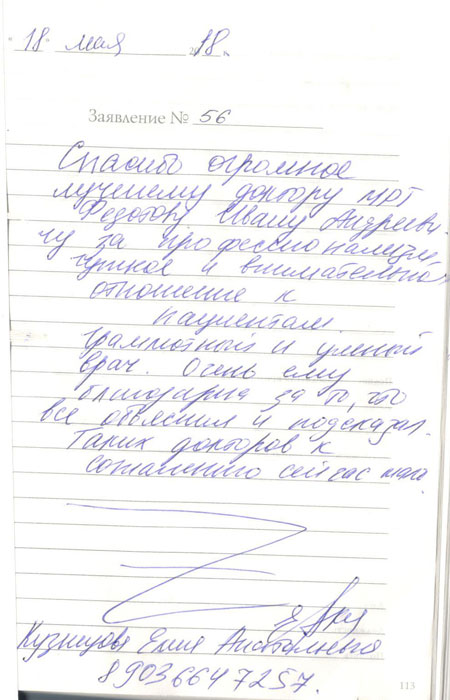 "18" мая 2018 г.
Заявление № 56
Спасибо огромное
лучшему доктору МРТ
Федотову Ивану Андрееви-
чу за профессионализм,
чуткое и внимательное
отношение к
пациентам
грамотный и умный
врач. Очень ему
благодарна за то, что
все объяснил и подсказал.
Таких докторов к
сожалению сейчас мало
Кузнецова Елена Анатольевна
89036647257
113